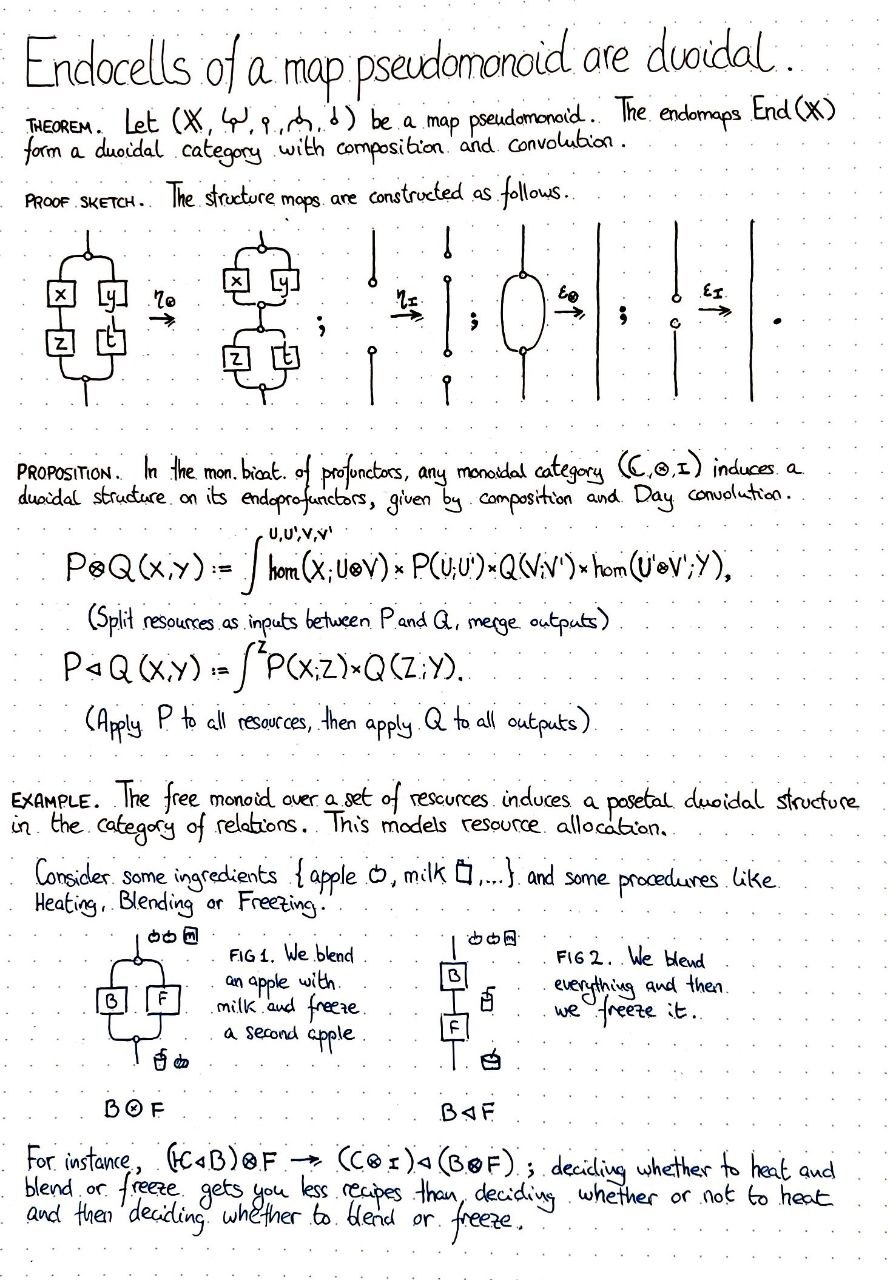 Endocells of a map pseudomonoid are duoidal.
THEOREM. Let (X, , , , ) be a map pseudomonoid. The endomaps End(X)
form a duoidal category with composition and convolution.
PROOF SKETCH. The structure maps are constructed as follows.
x y z t η⊗ → x y z t ; η_I → ; ε⊗ → ; ε_I → .
PROPOSITION. In the mon. bicat. of profunctors, any monoidal category (C,⊗,I) induces a
duoidal structure on its endoprofunctors, given by composition and Day convolution.
P⊗Q(X,Y) := ∫^{U,U',V,V'} hom(X;U⊗V) × P(U;U') × Q(V;V') × hom(U'⊗V';Y),
(Split resources as inputs between P and Q, merge outputs)
P⊲Q(X,Y) := ∫^Z P(X;Z) × Q(Z;Y).
(Apply P to all resources, then apply Q to all outputs)
EXAMPLE. The free monoid over a set of resources induces a posetal duoidal structure
in the category of relations. This models resource allocation.
Consider some ingredients {apple , milk ,...} and some procedures like
Heating, Blending or Freezing.
m
B F
FIG 1. We blend
an apple with
milk and freeze
a second apple
B⊗F
m
B
F
FIG 2. We blend
everything and then
we freeze it.
B⊲F
For instance, (H⊲B)⊗F → (H⊗I)⊲(B⊗F) ; deciding whether to heat and
blend or freeze gets you less recipes than deciding whether or not to heat
and then deciding whether to blend or freeze.